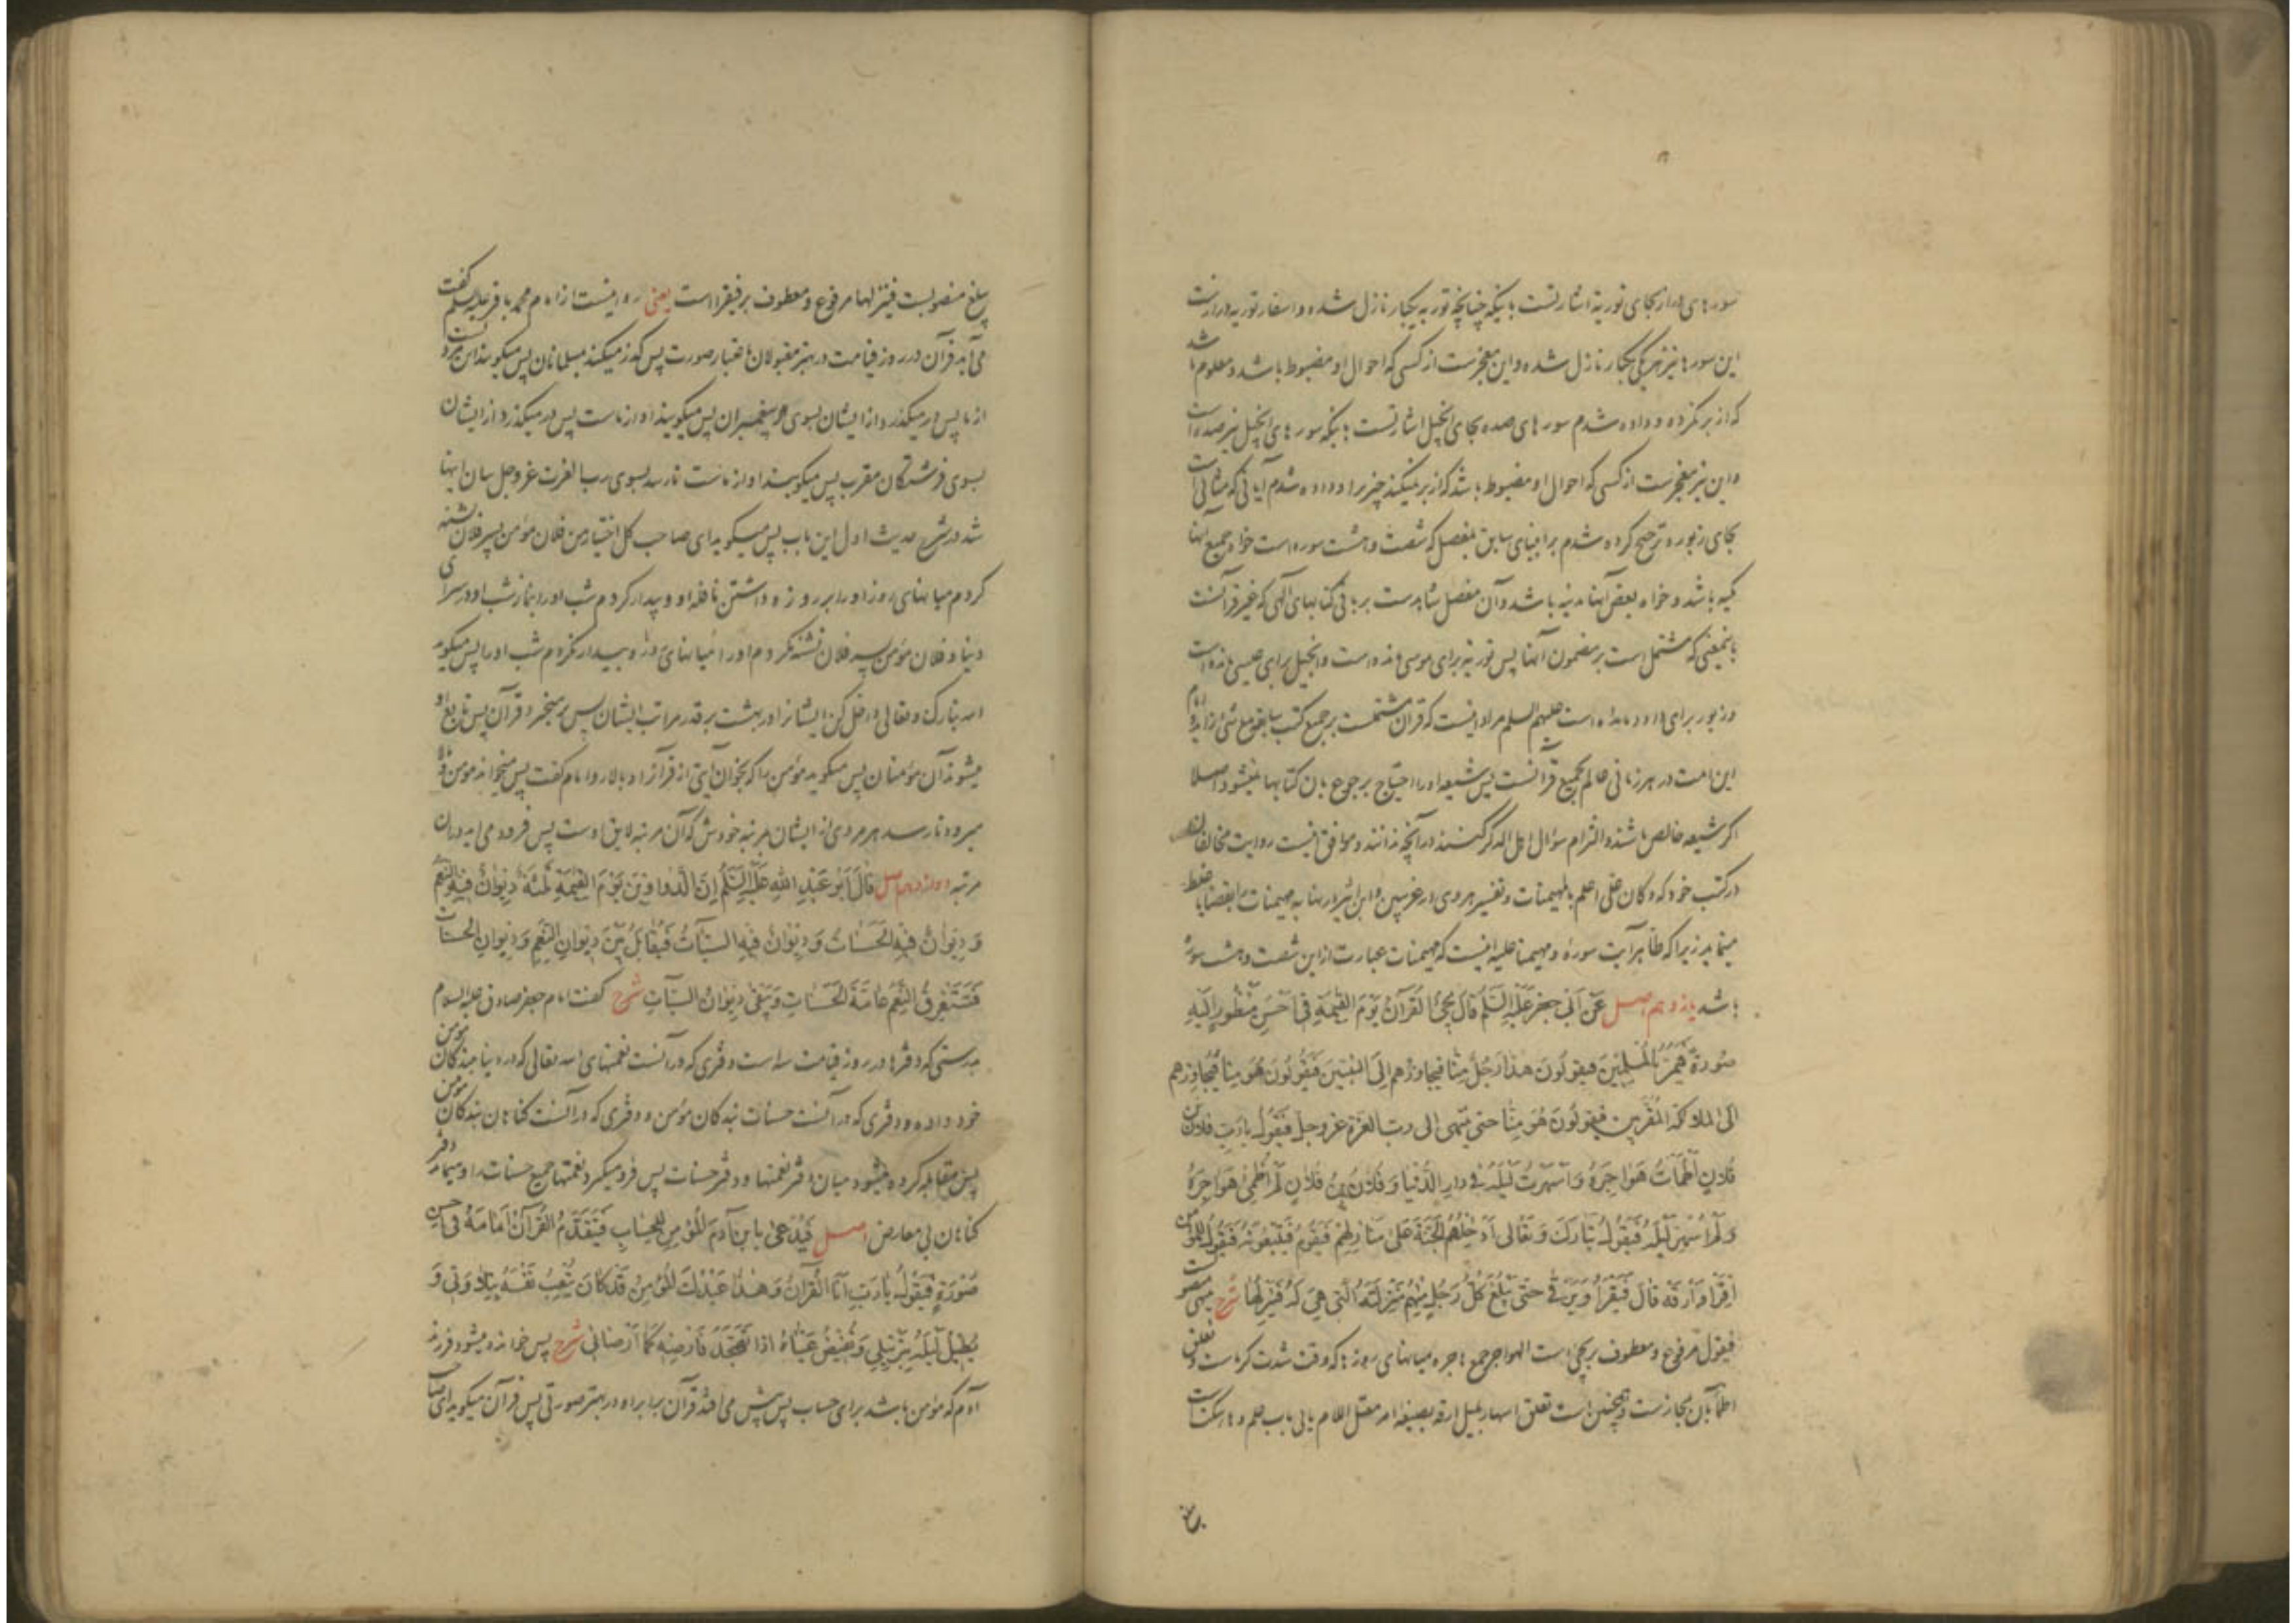 سورهای دراز بجای توریة اشارتست باینکه چنانچه توریه یکبار نازل شده و اسفار توریه دراز است
این سورها نیز هر یکی یکبار نازل شده و این معجزست از کسی که احوال او مضبوط باشد و معلوم باشد
که از بر نکرده و داده شدم سورهای صده بجای انجیل اشارتست باینکه سورهای انجیل نیز صده است
و این نیز معجزست از کسی که احوال او مضبوط باشد که از بر نمیکند چیزیرا و داده شدم آیاتی که مثانی است
بجای زبور و ترجیح کرده شدم بر انبیای سابق بمفصل که شصت و هشت سوره است خواه جمیع آنها
مکیه باشد و خواه بعض آنها مدنیه باشد و آن مفصل شاهدست بر باقی کتابهای الهی که غیر قرآنست
باینمعنی که مشتمل است بر مضمون آنها پس توریة برای موسی است و انجیل برای عیسی است
و زبور برای داود است علیهم السلم مراد اینست که قرآن مشتملست بر جمیع کتب سابقه
این امت در هر زمانی عالم بجمیع قرآنست پس شیعه او را احتیاج برجوع بآن کتابها نمیشود اصلا
اگر شیعه خالص باشند و التزام سؤال اهل الذکر کنند در آنچه ندانند و موافق نیست روایت مخالفان
در کتب خود که و کان علی اعلم بالمهیمنات و تفسیر هروی در غریبین و ابن اثیر در نهایه مهیمنات بقضایا
مینماید زیرا که ظاهر آیت سورهٔ و مهیمنا علیه اینست که مهیمنات عبارت از این شصت و هشت سوره
باشد یازدهم اصل عَنْ اَبی جعفر عَلَیْهِ السَّلَمُ قالَ یَجیءُ القُرآنُ یَوْمَ القِیٰمَةِ فی اَحْسَنِ مَنْظُورٍ اِلَیْهِ
صُورَةً فَیَمُرُّ بِالمُسلِمینَ فیقولُونَ هذا رَجُلٌ مِنّا فیجاوزهم اِلَی النَبیّینَ فَیَقُولُونَ هُوَ مِنّا فَیُجاوِزهم
اِلَی المَلائکَةِ المُقَرَّبین فیقولُونَ هُوَ مِنّا حتی ینتهی الی ربّ العِزّة عزّوجلّ فَیَقُولُ یا رَبِّ فلان بن
فُلانٍ اَظْمَأتُ هَواجِرَهُ وَ اَسْهَرتُ لَیْلَهُ فی دارِ الدُّنیا وَ فُلانُ بنُ فُلانٍ لَمْ اُظْمِئ هَواجِرَهُ
وَ لَمْ اُسْهِر لَیْلَهُ فَیَقُولُ تَبارَکَ وَ تَعالی اَدْخِلْهُمُ الجَنّةَ عَلی مَنازِلِهِمْ فَیَقُومُ فَیَتْبَعُونَهُ فَیَقُولُ لِلمُؤمن
اِقْرَأ وَ اَرْقَه قالَ فَیَقْرَأُ وَ یَرْقی حَتّی یَبْلُغَ کُلُّ رَجُلٍ مِنْهُم مَنْزِلَتَهُ الّتی هِیَ لَهُ فَیَنْزِلُها شرح
فیقول مرفوع و معطوف بر یجیء است الهواجر جمع هاجره میانهای روز که وقت شدت گرماست و تعلق
اظمأ بآن مجازست و همچنین است تعلق اسهار بلیل ارقه بصیغه امر معتل اللام یائی باب علم و هاء سکت است
یبلغ منصوبست فینزلها مرفوع و معطوف بر فیقرأ است یعنی روایتست از امام محمد باقر علیه السلم گفت
می‌آید قرآن در روز قیامت در بهتر مقبولان باعتبار صورت پس گذر میکند بمسلمانان پس میگویند این مرد
از ماست پس در میگذرد از ایشان بسوی پیغمبران پس میگویند او از ماست پس در میگذرد از ایشان
بسوی فرشتگان مقرب پس میگویند او از ماست تا رسد بسوی رب العزت عزوجل بیان اینها
شد در شرح حدیث اول این باب پس میگوید ای صاحب کل اختیار من فلان مؤمن پسر فلان تشنه
کردم میانهای روز او را بروزه داشتن نافله او و بیدار کردم شب او را بنماز شب او در سرای
دنیا و فلان مؤمن پسر فلان تشنه نکردم او را میانهای روز و بیدار نکردم شب او را پس میگوید
الله تبارک و تعالی داخل کن ایشانرا در بهشت بر قدر مراتب ایشان پس بر میخیزد قرآن پس تابع او
میشوند آن مؤمنان پس میگوید مؤمن را که بخوان آیتی از قرآن را و بالا رو امام گفت پس میخواند مؤمن و
میرود تا رسد هر مردی از ایشان بمرتبه خودش که آن مرتبه لایق اوست پس فرود می‌آید در آن
مرتبه دوازدهم اصل قالَ اَبُو عَبْدِ اللهِ عَلَیْهِ السَّلَمُ اِنَّ الدَّواوینَ یَوْمَ القِیٰمَةِ ثَلٰثَةٌ دِیْوانٌ فیهِ النِّعَمُ
وَ دِیْوانٌ فیهِ الحَسَناتُ وَ دِیْوانٌ فیهِ السَیّئاتُ فَیُقابَلُ بَیْنَ دِیوانِ النِّعَمِ وَ دِیوانِ الحَسَناتِ
فَتَسْتَغْرِقُ النِّعَمُ عامَّةَ الحَسَناتِ وَ یَبْقی دِیوانُ السَیّئاتِ شرح گفت امام جعفر صادق علیه السلام
بدرستی که دفترها در روز قیامت سه است دفتری که در آنست نعمتهای الله تعالی که در دنیا ببندگان مؤمن
خود داده و دفتری که در آنست حسنات بندگان مؤمن و دفتری که در آنست گناهان بندگان مؤمن
پس مقابله کرده میشود میان دفتر نعمتها و دفتر حسنات پس فرو میگیرد نعمتها جمیع حسنات را و میماند دفتر
گناهان بی معارض اصل فَیُدْعی بِابنِ آدَمَ المُؤمِنِ لِلحِسابِ فَیَتَقَدَّمُ القُرآنُ اَمامَهُ فی اَحسن
صُوْرَةٍ فَیَقُولُ یا رَبِّ اَنَا القُرآنُ وَ هٰذا عَبْدُکَ المُؤمِنُ قَدْ کانَ یُتْعِبُ نَفْسَهُ بِتِلاوَتی وَ
یُطیلُ لَیْلَهُ بِتَرْتیلی وَ تَفیضُ عَیْناهُ اذا تَهَجَّدَ فَاَرْضِهِ کَما اَرْضانی شرح پس خوانده میشود فرزند
آدم که مؤمن باشد برای حساب پس پیش می‌افتد قرآن برابر او در بهتر صورتی پس قرآن میگوید ای صاحب